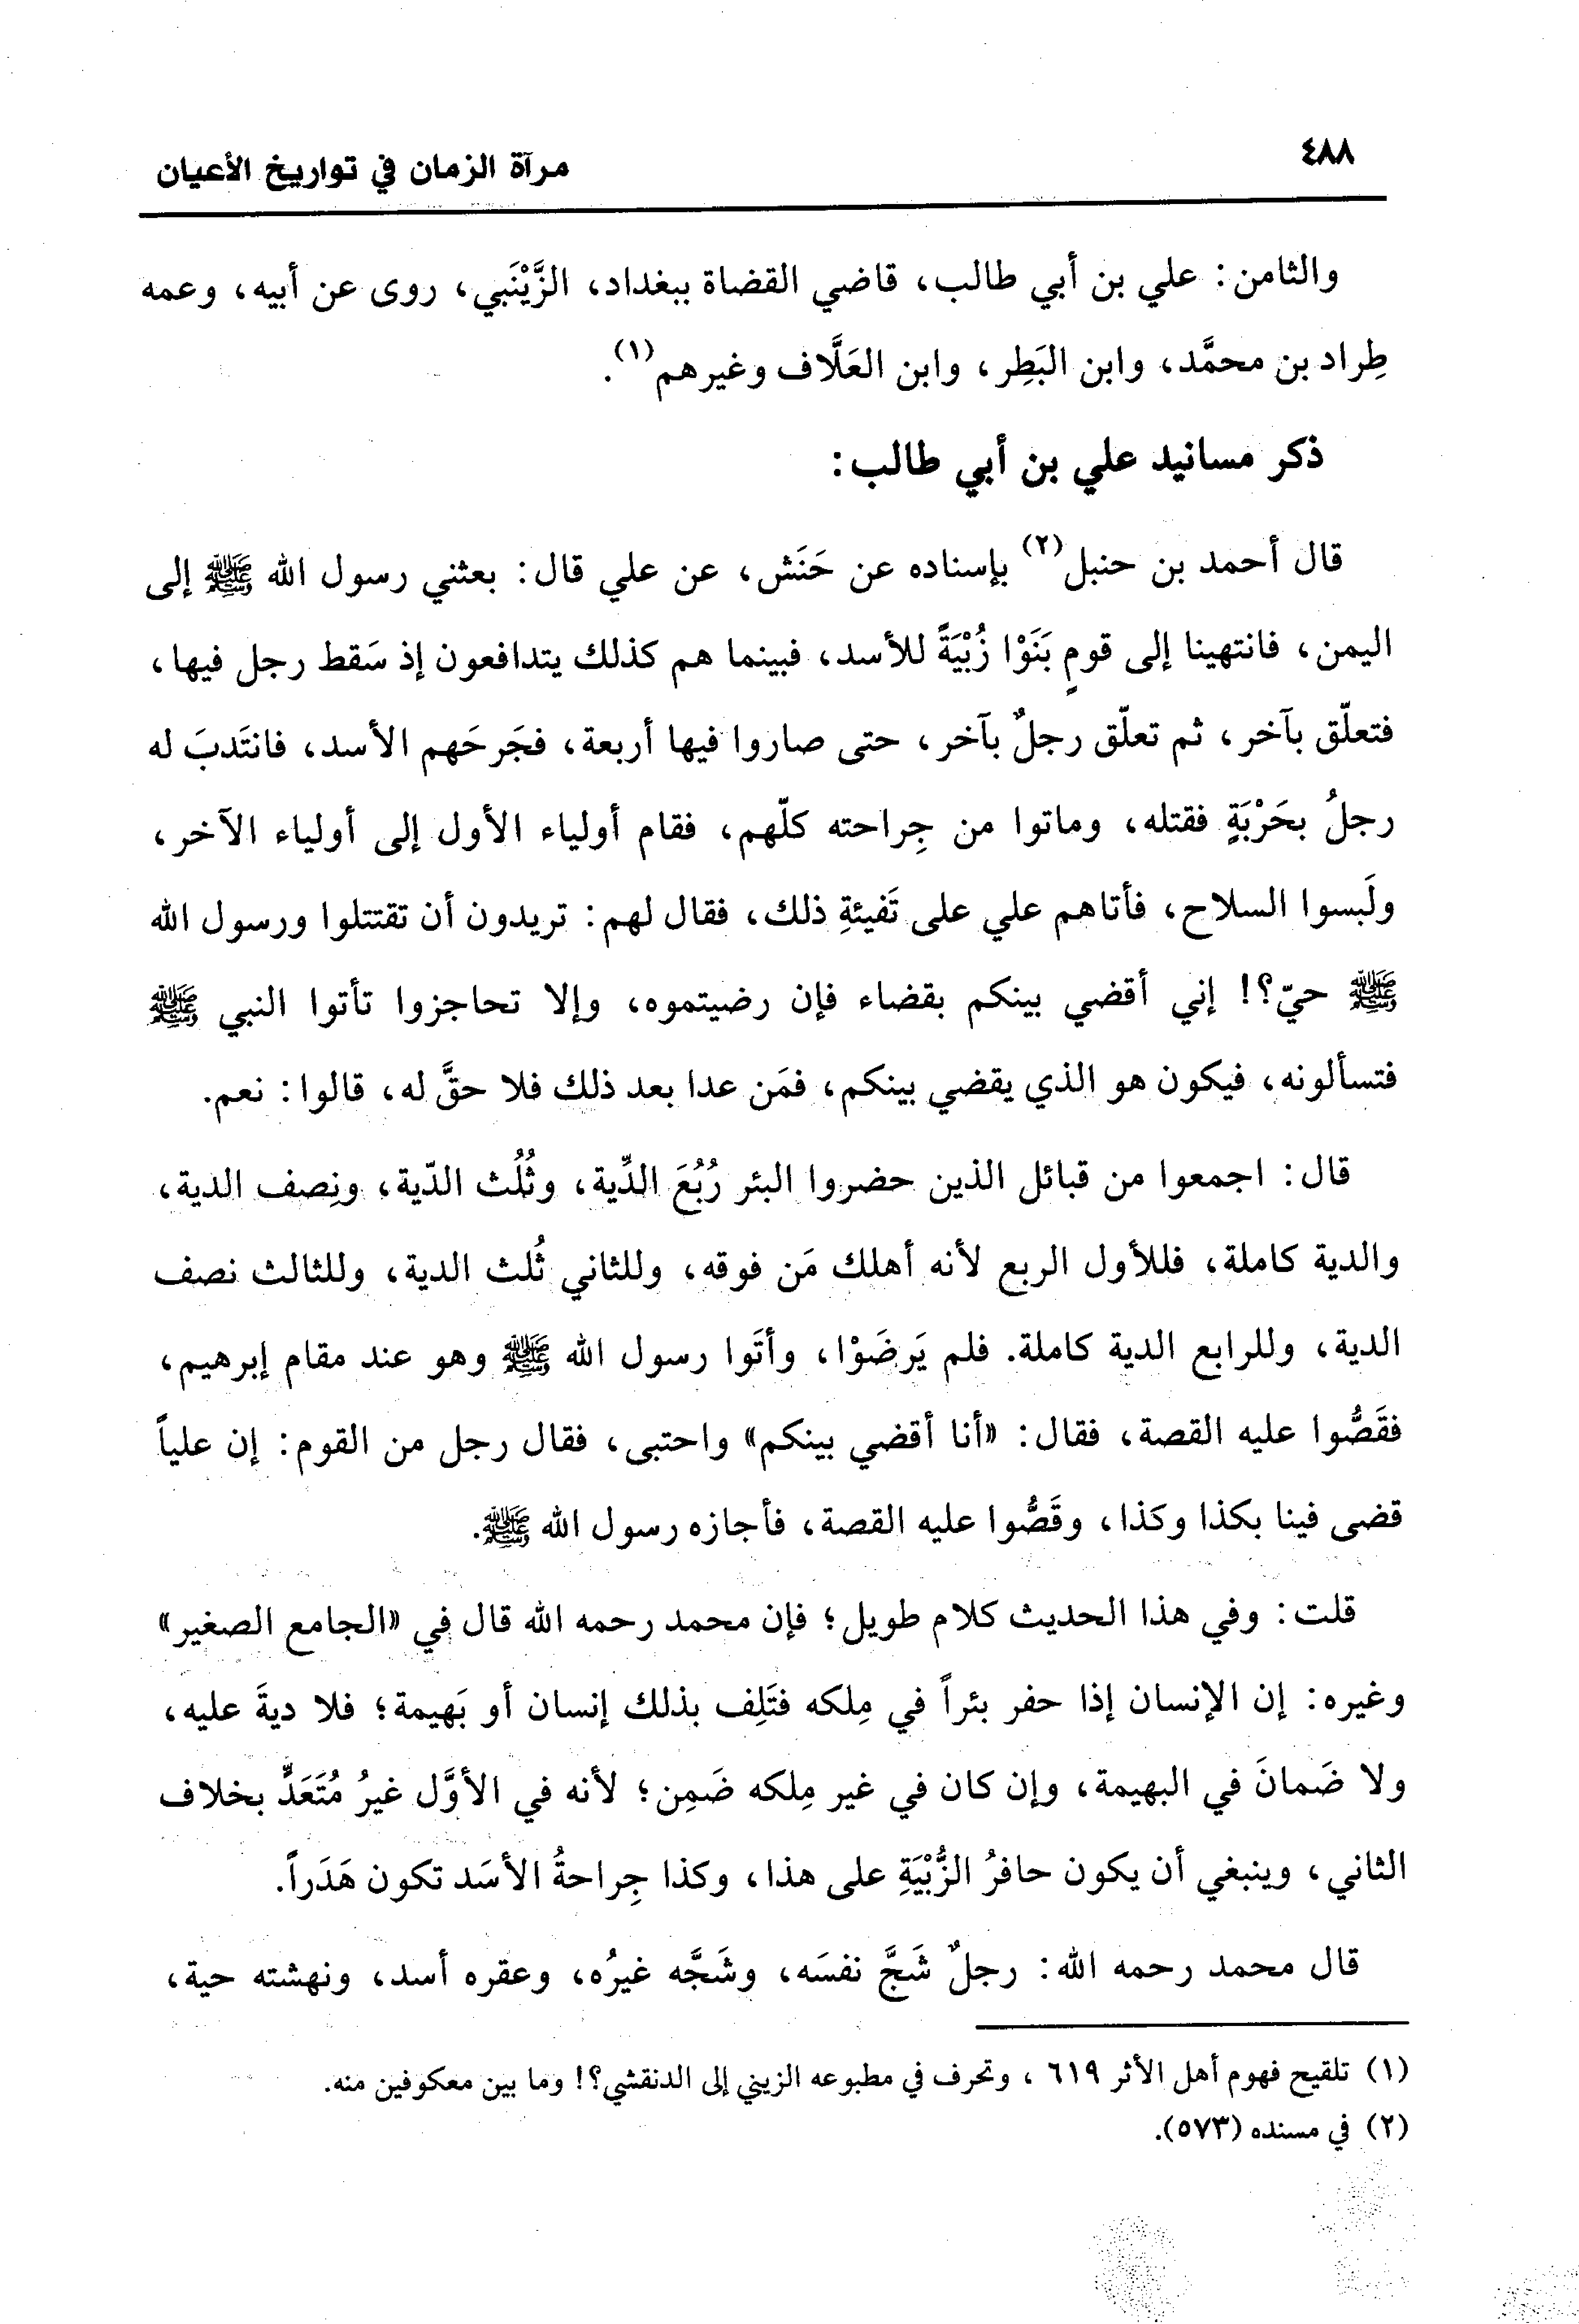 ٤٨٨
مرآة الزمان في تواريخ الأعيان
والثامن: علي بن أبي طالب، قاضي القضاة ببغداد، الزَّيْنَبي، روى عن أبيه، وعمه
طِراد بن محمَّد، وابن البَطِر، وابن العَلَّاف وغيرهم(١).
ذكر مسانيد علي بن أبي طالب:
قال أحمد بن حنبل(٢) بإسناده عن حَنَش، عن علي قال: بعثني رسول الله ﷺ إلى
اليمن، فانتهينا إلى قومٍ بَنَوْا زُبْيَةً للأسد، فبينما هم كذلك يتدافعون إذ سَقط رجل فيها،
فتعلّق بآخر، ثم تعلّق رجلٌ بآخر، حتى صاروا فيها أربعة، فجَرحَهم الأسد، فانتَدبَ له
رجلُ بحَرْبَةٍ فقتله، وماتوا من جِراحته كلّهم، فقام أولياء الأول إلى أولياء الآخر،
ولَبسوا السلاح، فأتاهم علي على تَفيئةِ ذلك، فقال لهم: تريدون أن تقتتلوا ورسول الله
ﷺ حيّ؟! إني أقضي بينكم بقضاء فإن رضيتموه، وإلا تحاجزوا تأتوا النبي ﷺ
فتسألونه، فيكون هو الذي يقضي بينكم، فمَن عدا بعد ذلك فلا حقَّ له، قالوا: نعم.
قال: اجمعوا من قبائل الذين حضروا البئر رُبُعَ الدِّية، وثُلُث الدّية، ونِصف الدية،
والدية كاملة، فللأول الربع لأنه أهلك مَن فوقه، وللثاني ثُلث الدية، وللثالث نصف
الدية، وللرابع الدية كاملة. فلم يَرضَوْا، وأتَوا رسول الله ﷺ وهو عند مقام إبرهيم،
فقَصُّوا عليه القصة، فقال: «أنا أقضي بينكم» واحتبى، فقال رجل من القوم: إن علياً
قضى فينا بكذا وكذا، وقَصُّوا عليه القصة، فأجازه رسول الله ﷺ.
قلت: وفي هذا الحديث كلام طويل؛ فإن محمد رحمه الله قال في «الجامع الصغير»
وغيره: إن الإنسان إذا حفر بئراً في مِلكه فتَلِف بذلك إنسان أو بَهيمة؛ فلا ديةَ عليه،
ولا ضَمانَ في البهيمة، وإن كان في غير مِلكه ضَمِن؛ لأنه في الأوَّل غيرُ مُتَعَدٍّ بخلاف
الثاني، وينبغي أن يكون حافرُ الزُّبْيَةِ على هذا، وكذا جِراحةُ الأسَد تكون هَدَراً.
قال محمد رحمه الله: رجلٌ شَجَّ نفسَه، وشَجَّه غيرُه، وعقره أسد، ونهشته حية،
(١) تلقيح فهوم أهل الأثر ٦١٩ ، وتحرف في مطبوعه الزيني إلى الدنقشي؟! وما بين معكوفين منه.
(٢) في مسنده (٥٧٣).